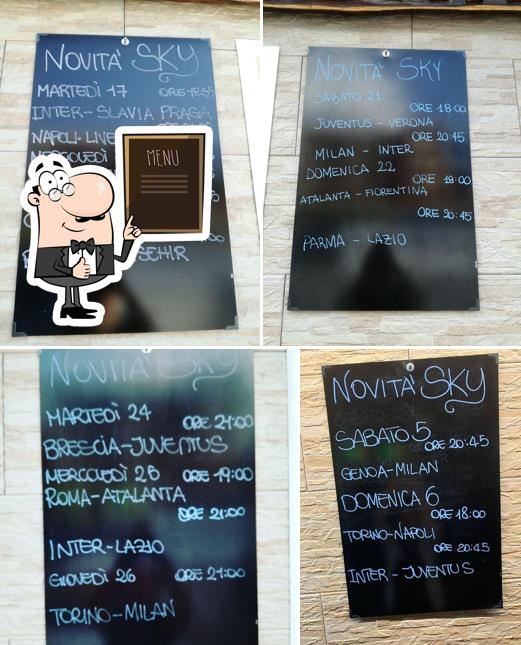 NOVITA' SKY
MARTEDÌ 17
INTER-SLAVIA PRAGA
NAPOLI-
MENU
NOVITA' SKY
SABATO 21
ORE 18:00
JUVENTUS - VERONA
ORE 20:45
MILAN - INTER
DOMENICA 22
ORE 18:00
ATALANTA - FIORENTINA
ORE 20:45
PARMA - LAZIO
NOVITA' SKY
MARTEDÌ 24 ORE 21:00
BRESCIA-JUVENTUS
MERCOLEDÌ 25 ORE 19:00
ROMA-ATALANTA
ORE 21:00
INTER-LAZIO
GIOVEDÌ 26 ORE 21:00
TORINO-MILAN
NOVITA' SKY
SABATO 5
ORE 20:45
GENOA-MILAN
DOMENICA 6
ORE 18:00
TORINO-NAPOLI
ORE 20:45
INTER - JUVENTUS